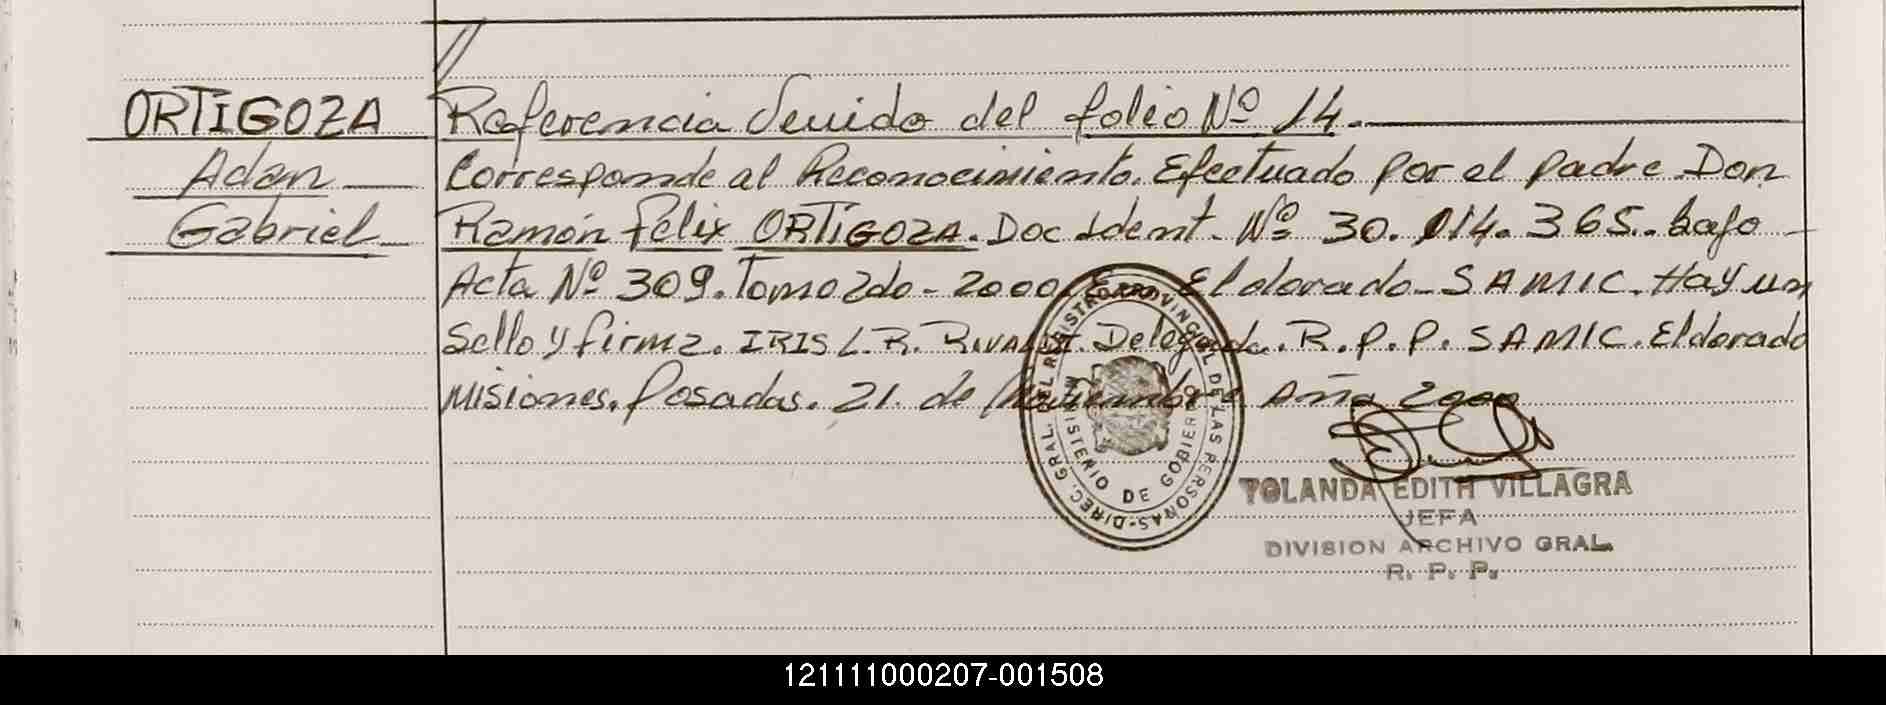 ORTIGOZA
Adan
Gabriel
Referencia Venido del folio Nº 14.
Corresponde al Reconocimiento. Efectuado por el padre Don
Ramón Felix ORTIGOZA. Doc Ident. Nº 30. 014. 365. bajo
Acta Nº 309. Tomo 2do - 2000. Eldorado - SAMIC. Hay un
Sello y firma. IRIS L. R. Delegada. R. P. P. SAMIC. Eldorado
Misiones. Posadas. 21. de Noviembre Año 2000
DIREC. GRAL. DEL REGISTRO PROVINCIAL DE LAS PERSONAS
MINISTERIO DE GOBIERNO
YOLANDA EDITH VILLAGRA
JEFA
DIVISION ARCHIVO GRAL.
R. P. P.
121111000207-001508